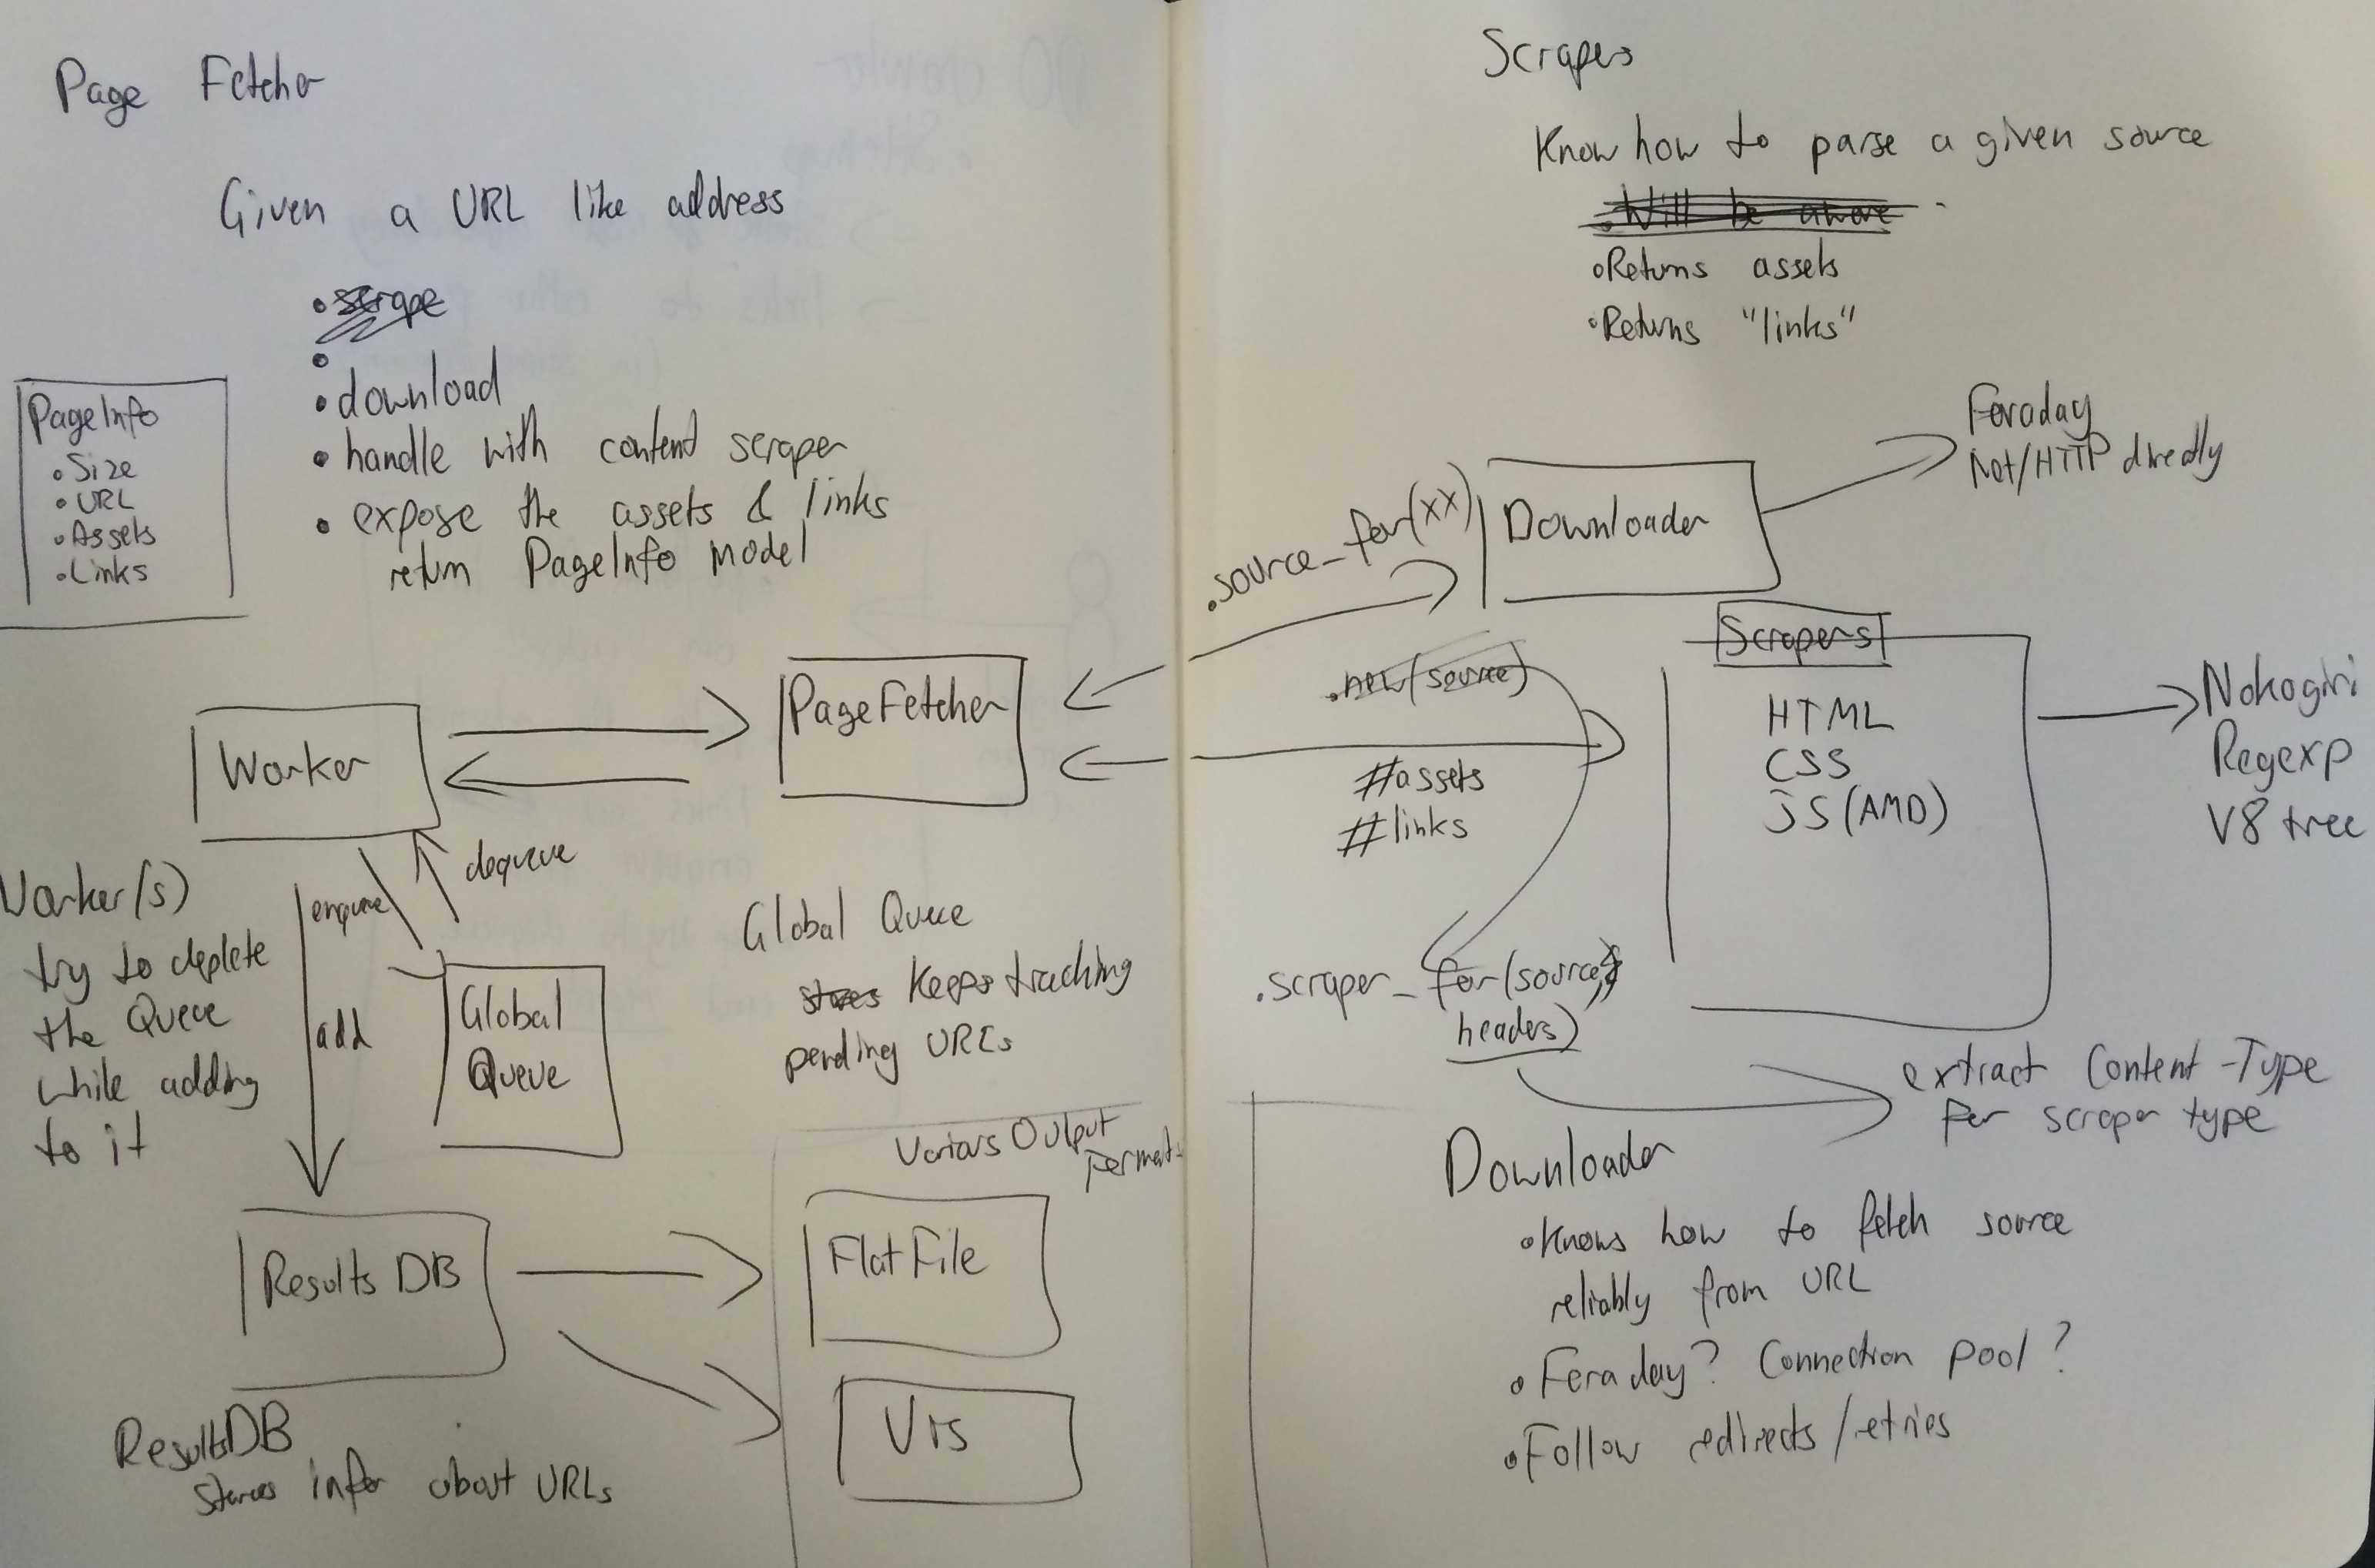 Page Fetcher
Given a URL like address
• scrape
•
• download
• handle with content scraper
• expose the assets & links
return PageInfo model
PageInfo
• Size
• URL
• Assets
• Links
Worker
PageFetcher
dequeue
enqueue
add
Worker(s)
try to deplete
the Queue
while adding
to it
Global
Queue
Global Queue
stores Keeps tracking
pending URLs
Various Output
Format
Results DB
FlatFile
Vis
ResultsDB
stores info about URLs
Scrapers
Know how to parse a given source
• Will be aware
• Returns assets
• Returns "links"
Faraday
Net/HTTP directly
.source_for(xx)
Downloader
.new(source)
Scrapers
HTML
CSS
JS(AMD)
Nokogiri
Regexp
V8 tree
#assets
#links
.scraper_for(source,
headers)
extract Content-Type
for scraper type
Downloader
• Knows how to fetch source
reliably from URL
• Feraday? Connection pool?
• Follow redirects/retries